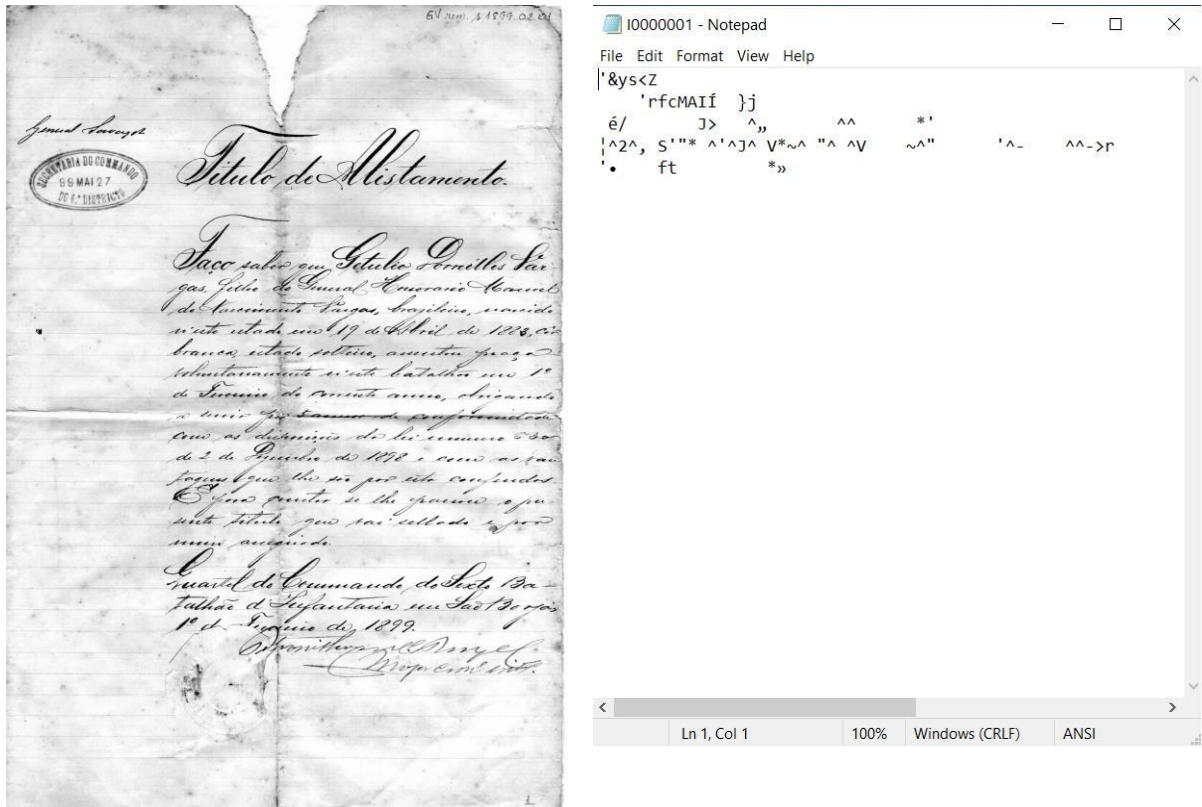 GV rem. s 1899.02.01
General Savaget
SECRETARIA DO COMMANDO
99 MAI 27
DO 6.º DISTRICTO
Titulo de Alistamento.
Faço saber que Getulio Dornelles Var-
gas, filho do General Honorario Manoel
do Nascimento Vargas, brasileiro, nascido
n'este estado em 19 de Abril de 1883, côr
branca, estado solteiro, assentou praça
voluntariamente n'este batalhão em 1º
de Fevereiro do corrente anno, obrigando
a servir por annos de conformidade
com as disposições da lei numero
de 2 de de 1898 e com as van
tagens que lhe são por esta conferidas.
E para constar se lhe passou o pre
sente titulo que vai sellado e por
mim assignado.
Quartel do Commando do Sexto Ba-
talhão d'Infantaria em São Borja,
1º de Fevereiro de 1899.
Major Comte intº.
1
I0000001 - Notepad
File Edit Format View Help
'&ys<Z
'rfcMAIÍ }j
é/ J> ^„ ^^ *'
¦^2^, S'"* ^'^J^ V*~^ "^ ^V ~^" '^- ^^->r
'• ft *»
Ln 1, Col 1 100% Windows (CRLF) ANSI